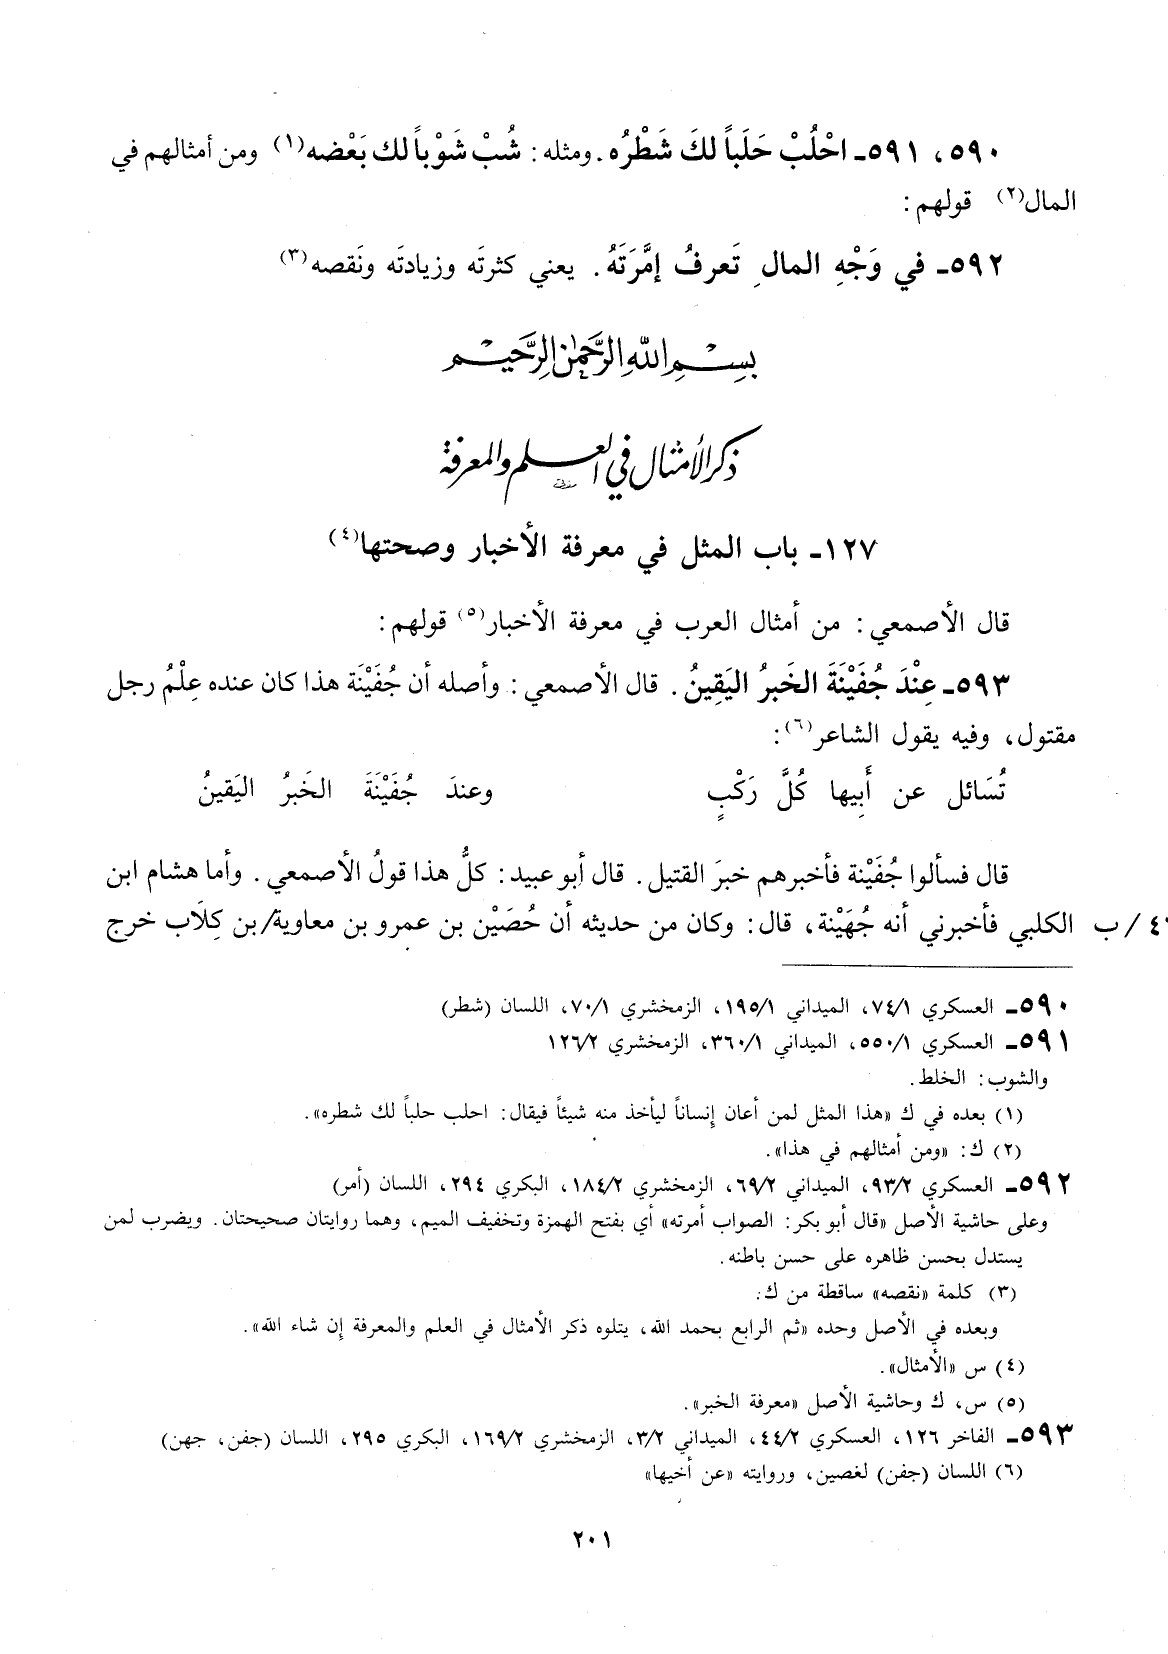 ٥٩٠، ٥٩١ـ احْلُبْ حَلَباً لكَ شَطْرُه. ومثله: شُبْ شَوْباً لك بَعْضه(١) ومن أمثالهم في
المال(٢) قولهم:
٥٩٢ـ في وَجْهِ المالِ تَعرفُ إمَّرَتَهُ. يعني كثرتَه وزيادتَه ونَقصه(٣)
بِسْمِ اللهِ الرَّحْمٰنِ الرَّحِيْمِ
ذكر الأمثال في العلم والمعرفة
١٢٧ـ باب المثل في معرفة الأخبار وصحتها(٤)
قال الأصمعي: من أمثال العرب في معرفة الأخبار(٥) قولهم:
٥٩٣ـ عِنْدَ جُفَيْنَةَ الخَبرُ اليَقِينُ. قال الأصمعي: وأصله أن جُفَيْنَة هذا كان عنده عِلْمُ رجل
مقتول، وفيه يقول الشاعر(٦):
تُسَائل عن أَبِيها كُلَّ رَكْبٍ وعندَ جُفَيْنَةَ الخَبرُ اليَقينُ
قال فسألوا جُفَيْنة فأخبرهم خبرَ القتيل. قال أبو عبيد: كلُّ هذا قولُ الأصمعي. وأما هشام ابن
/ب الكلبي فأخبرني أنه جُهَيْنة، قال: وكان من حديثه أن حُصَيْن بن عمرو بن معاوية/بن كِلَاب خرج
٥٩٠ـ العسكري ٧٤/١، الميداني ١٩٥/١، الزمخشري ٧٠/١، اللسان (شطر)
٥٩١ـ العسكري ٥٥٠/١، الميداني ٣٦٠/١، الزمخشري ١٢٦/٢
والشوب: الخلط.
(١) بعده في ك «هذا المثل لمن أعان إنساناً ليأخذ منه شيئاً فيقال: احلب حلباً لك شطره».
(٢) ك: «ومن أمثالهم في هذا».
٥٩٢ـ العسكري ٩٣/٢، الميداني ٦٩/٢، الزمخشري ١٨٤/٢، البكري ٢٩٤، اللسان (أمر)
وعلى حاشية الأصل «قال أبو بكر: الصواب أمرته» أي بفتح الهمزة وتخفيف الميم، وهما روايتان صحيحتان. ويضرب لمن
يستدل بحسن ظاهره على حسن باطنه.
(٣) كلمة «نقصه» ساقطة من ك:
وبعده في الأصل وحده «ثم الرابع بحمد الله، يتلوه ذكر الأمثال في العلم والمعرفة إن شاء الله».
(٤) س «الأمثال».
(٥) س، ك وحاشية الأصل «معرفة الخبر».
٥٩٣ـ الفاخر ١٢٦، العسكري ٤٤/٢، الميداني ٣/٢، الزمخشري ١٦٩/٢، البكري ٢٩٥، اللسان (جفن، جهن)
(٦) اللسان (جفن) لغصين، وروايته «عن أخيها»
٢٠١